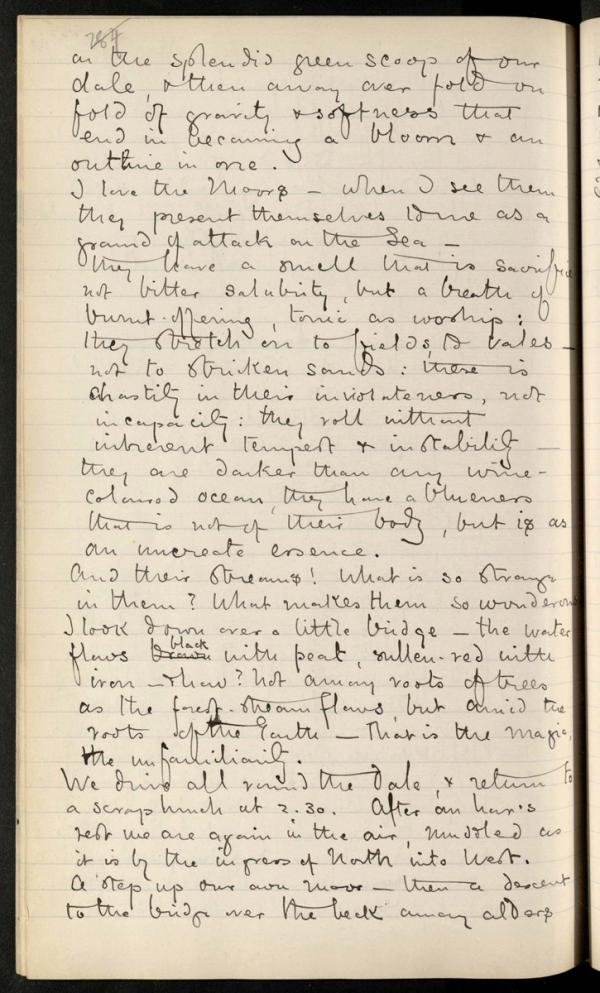 284
on the splendid green scoop of our
dale, & then away over fold on
fold of gravity & softness that
end in becoming a bloom & an
outline in one.
I love the Moors – when I see them
they present themselves to me as a
ground of attack on the Sea –
They have a smell that is sacrifice
not bitter salubrity, but a breath of
burnt-offering, tonic as worship:
they stretch on to fields, to vales –
not to stricken sands: there is
chastity in their inviolateness, not
incapacity: they roll without
inherent tempest & instability –
they are darker than any wine-
coloured ocean, they have a blueness
that is not of their body, but is as
an uncreate essence.
And their streams! What is so strange
in them? What makes them so wonderous
I look down over a little bridge – the water
flows brown black with peat, sullen-red with
iron – & how? Not among roots of trees
as the forest-stream flows, but amid the
roots of the Earth – That is the magic,
the unfamiliarity.
We drive all round the Dale, & return to
a scrap lunch at 2.30. After an hour's
rest we are again in the air, muddled as
it is by the ingress of North into West.
A step up our own moor – then a descent
to the bridge over the beck among alders